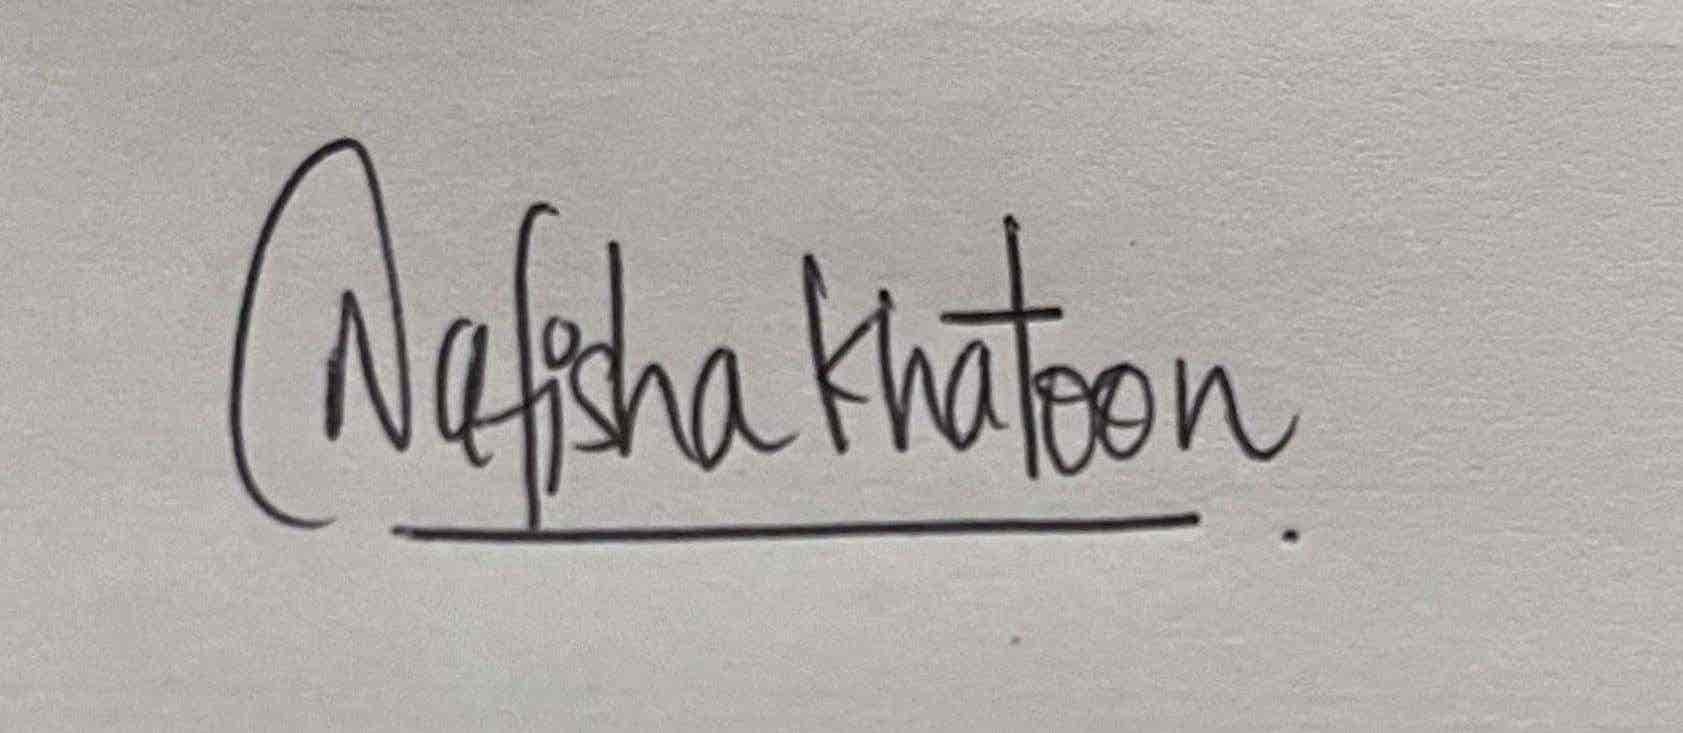 Nafisha Khatoon.